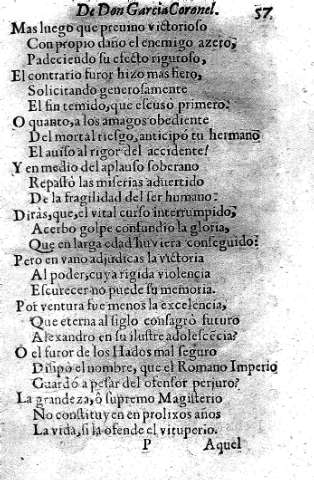 De Don Garcia Coronel. 57.
Mas luego que preuino victorioso
Con propio daño el enemigo azero,
Padeciendo su efecto riguroso,
El contrario furor hizo mas fiero,
Solicitando generosamente
El fin temido, que escusò primero:
O quanto, a los amagos obediente
Del mortal riesgo, anticipó tu hermano
El auiso al rigor del accidente!
Y en medio del aplauso soberano
Repastò las miserias aduertido
De la fragilidad del ser humano:
Diràs, que, el vital curso interrumpido,
Acerbo golpe confundio la gloria,
Que en larga edad huviera conseguido:
Pero en vano adjudicas la victoria
Al poder, cuya rigida violencia
Escurecer no puede su memoria.
Por ventura fue menos la excelencia,
Que eterna al siglo consagrò futuro
Alexandro en su ilustre adolescẽcia?
O el furor de los Hados mal seguro
Disipò el nombre, que el Romano Imperio
Guardò a pesar del ofensor perjuro?
La grandeza, ò supremo Magisterio
No constituyen en prolixos años
La vida, si la ofende el vituperio.
P Aquel